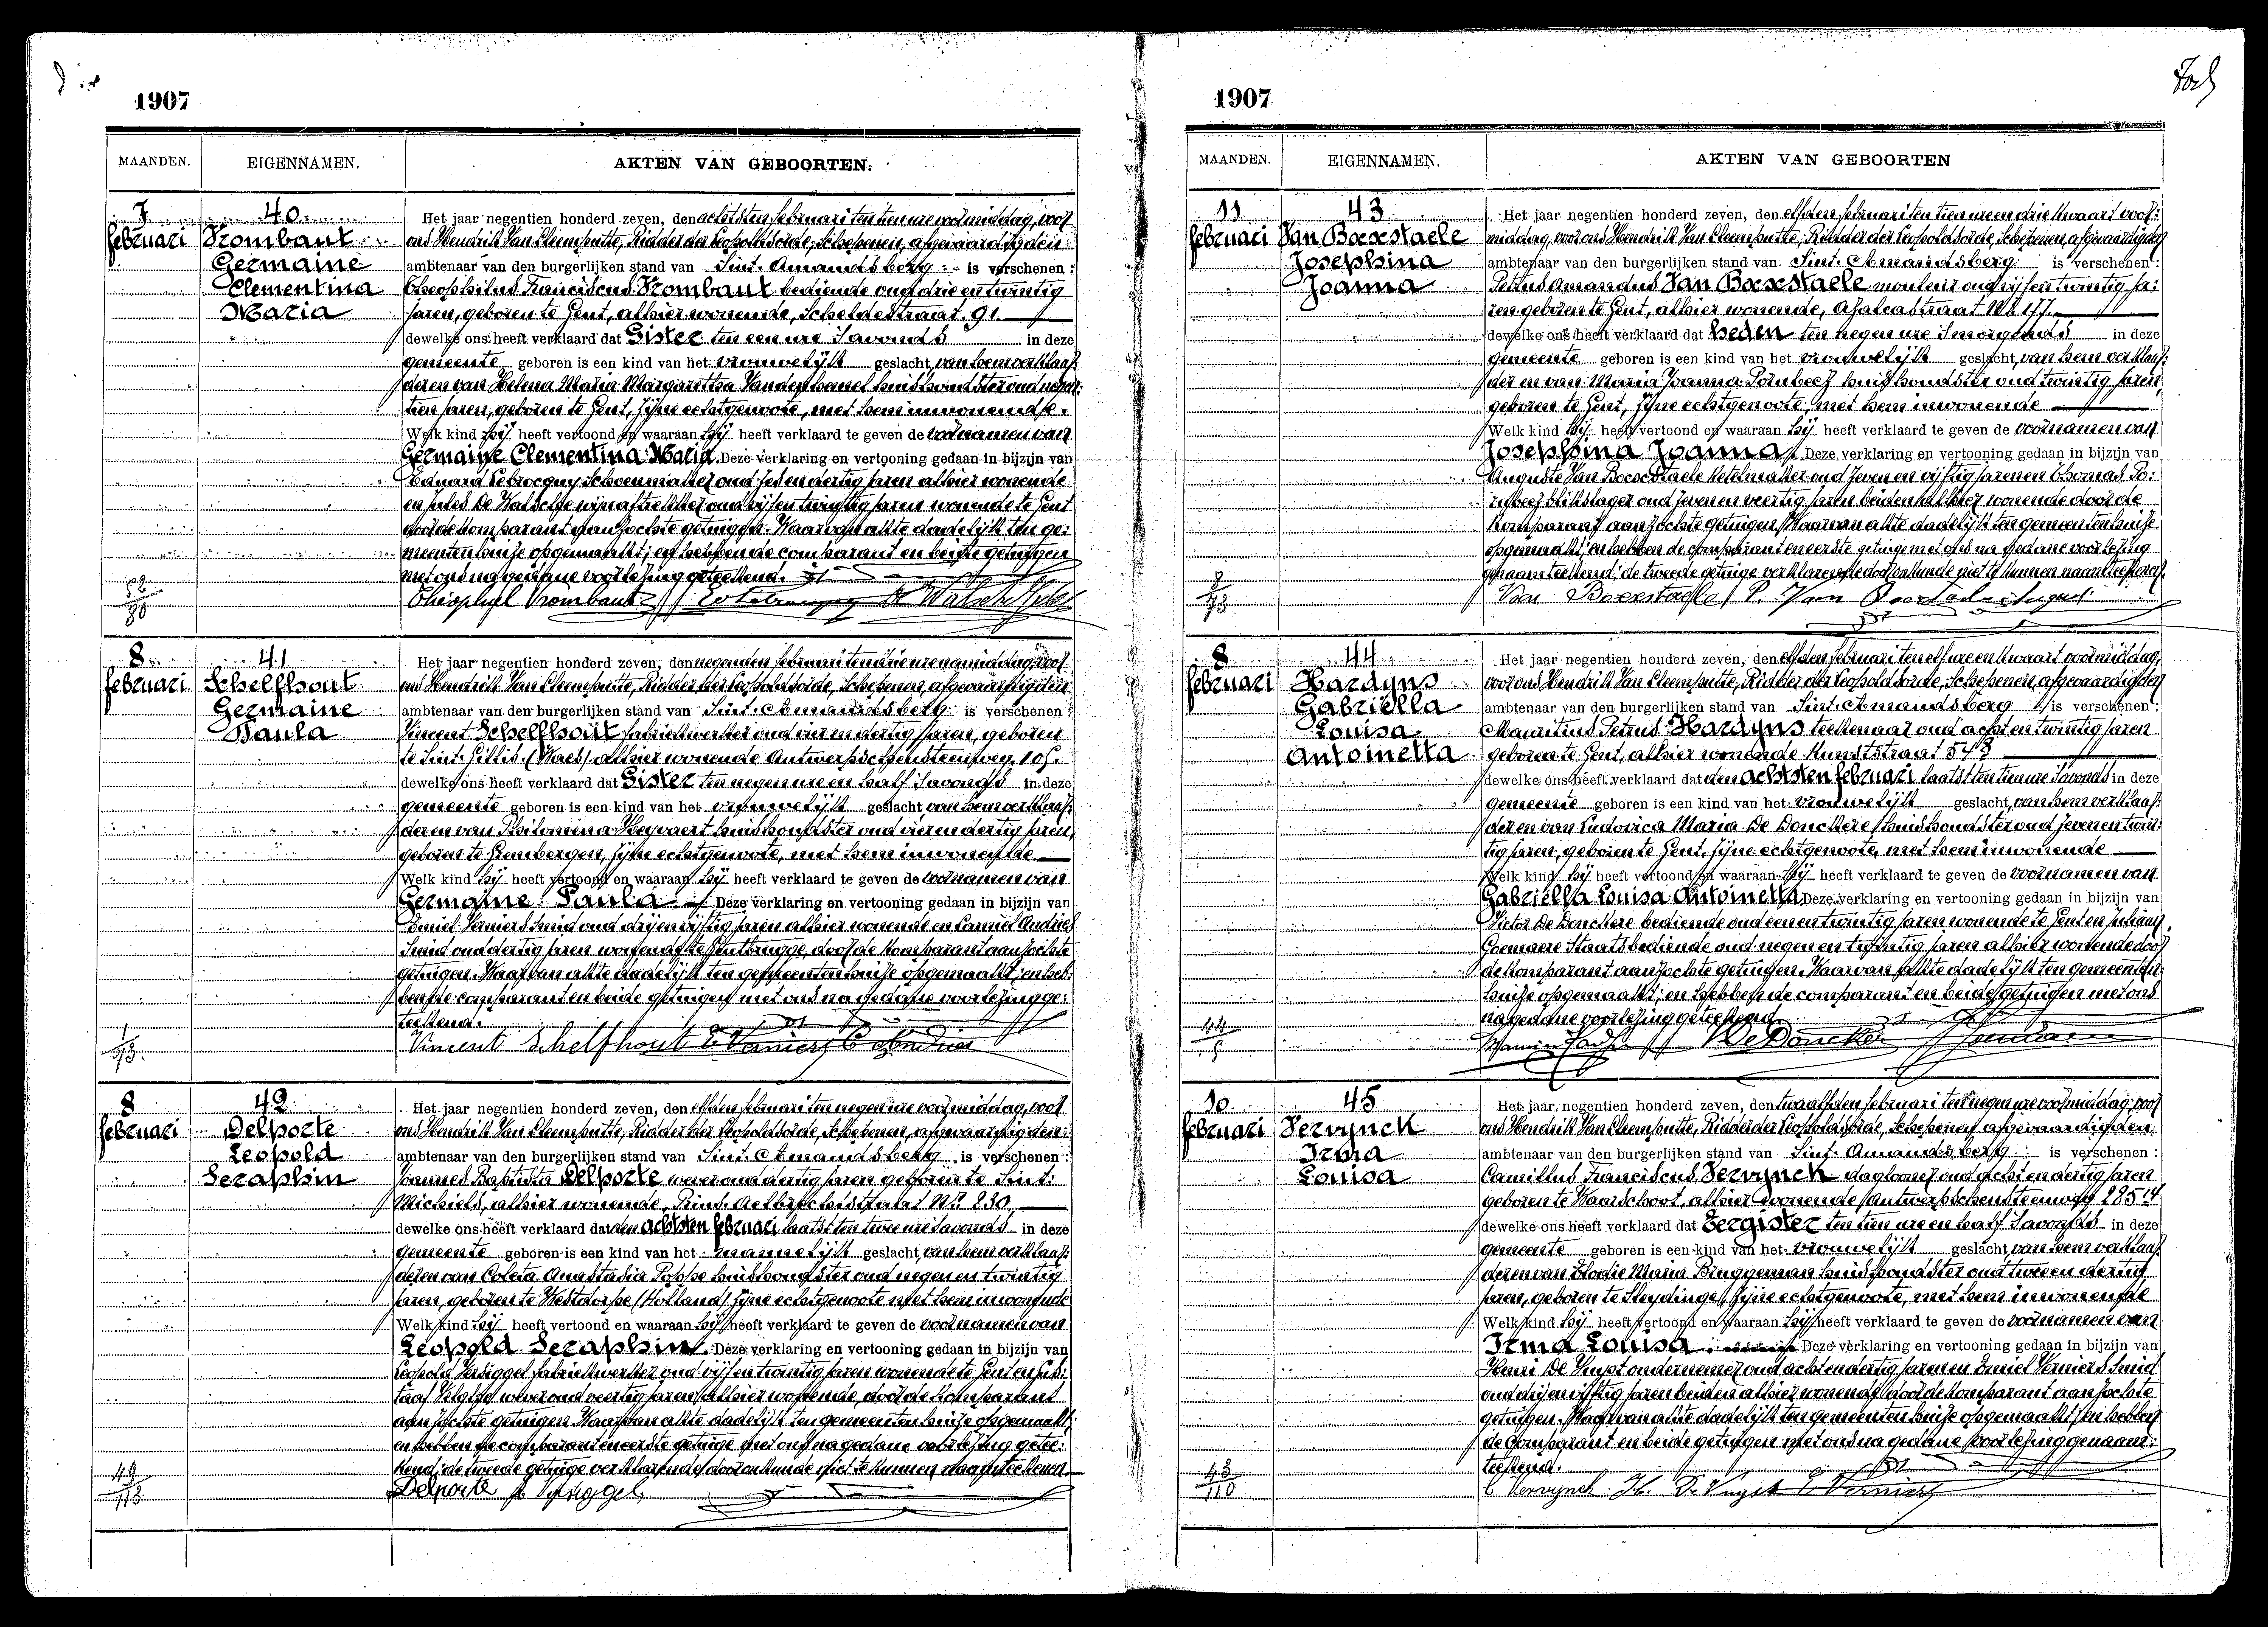 1907
MAANDEN. EIGENNAMEN. AKTEN VAN GEBOORTEN.
7 februari
40
Vrombaut
Germaine
Clementina
Maria
Het jaar negentien honderd zeven, den achtsten februari ten tien ure voormiddag, voor
ons Hendrik Van Cleemputte, Ridder der Leopoldsorde, Schepenen, afgevaardigden
ambtenaar van den burgerlijken stand van Sint-Amandsberg is verschenen :
Theophilus Franciscus Vrombaut bediende oud drie en twintig
jaren, geboren te Gent, alhier wonende, Scheldestraat 91.
dewelke ons heeft verklaard dat Gister ten een ure 's avonds in deze
gemeente geboren is een kind van het vrouwelijk geslacht, van hem verklaar:
der en van Helena Maria Margaretha huishoudster oud negen:
tien jaren, geboren te Gent, zijne echtgenoote, met hem inwonende.
Welk kind hij heeft vertoond en waaraan hij heeft verklaard te geven de voornamen van
Germaine Clementina Maria. Deze verklaring en vertooning gedaan in bijzijn van
Eduard schoenmaker oud zes en dertig jaren alhier wonende
en Jules De Walsche oud vijf en twintig jaren wonende te Gent
door de komparant aanzochte getuigen. Waarvan akte dadelijk ten ge:
meentenhuize opgemaakt; en hebben de comparant en beide getuigen
met ons na gedane voorlezing geteekend.
Théophiel Vrombaut
8 februari
41
Schelfhout
Germaine
Paula
Het jaar negentien honderd zeven, den negenden februari ten drie ure namiddag, voor
ons Hendrik Van Cleemputte, Ridder der Leopoldsorde, Schepenen, afgevaardigden
ambtenaar van den burgerlijken stand van Sint-Amandsberg is verschenen :
Vincent Schelfhout fabriekwerker oud vier en dertig jaren, geboren
te Sint-Gillis (Waes) alhier wonende Antwerpschensteenweg, 105.
dewelke ons heeft verklaard dat Gister ten negen ure en half 's avonds in deze
gemeente geboren is een kind van het vrouwelijk geslacht van hem verklaar:
der en van Philomena Heyvaert huishoudster oud vier en dertig jaren,
geboren te Grembergen, zijne echtgenoote, met hem inwonende
Welk kind hij heeft vertoond en waaraan hij heeft verklaard te geven de voornamen van
Germaine Paula. Deze verklaring en vertooning gedaan in bijzijn van
Emiel Verniers smid oud drij en vijftig jaren alhier wonende en Camiel Andries
smid oud dertig jaren wonende te Gentbrugge, door de komparant aanzochte
getuigen. Waarvan akte dadelijk ten gemeentenhuize opgemaakt; en heb:
ben de comparant en beide getuigen met ons na gedane voorlezing ge:
teekend.
Vincent Schelfhout E. Verniers C. Andries
8 februari
42
Delporte
Leopold
Seraphin
Het jaar negentien honderd zeven, den elfden februari ten negen ure voormiddag, voor
ons Hendrik Van Cleemputte, Ridder der Leopoldsorde, Schepenen, afgevaardigden
ambtenaar van den burgerlijken stand van Sint-Amandsberg is verschenen :
Joannes Baptista Delporte wever oud dertig jaren geboren te Sint-
Michiels, alhier wonende, Prins Aelbrechtstraat Nr. 230.
dewelke ons heeft verklaard dat den achtsten februari laatst ten twee ure 's avonds in deze
gemeente geboren is een kind van het mannelijk geslacht, van hem verklaar:
der en van Coleta Anastasia Poppe huishoudster oud negen en twintig
jaren, geboren te Westdorpe (Holland) zijne echtgenoote met hem inwonende
Welk kind hij heeft vertoond en waaraan hij heeft verklaard te geven de voornamen van
Leopold Seraphin. Deze verklaring en vertooning gedaan in bijzijn van
Leopold Versiggel fabriekwerker oud vijf en twintig jaren wonende te Gent en Gus:
taaf wever oud veertig jaren alhier wonende, door de komparant
aanzochte getuigen. Waarvan akte dadelijk ten gemeentenhuize opgemaakt;
en hebben de comparant en eerste getuige met ons na gedane voorlezing getee:
kend; de tweede getuige verklarende door onkunde niet te kunnen naamteekenen.
Delporte L. Versiggel
1907
MAANDEN. EIGENNAMEN. AKTEN VAN GEBOORTEN
11 februari
43
Van Bocxstaele
Josephina
Joanna
Het jaar negentien honderd zeven, den elfden februari ten tien ure en drie kwaart voor:
middag, voor ons Hendrik Van Cleemputte, Ridder der Leopoldsorde, Schepenen, afgevaardigden
ambtenaar van den burgerlijken stand van Sint-Amandsberg is verschenen :
Petrus Amandus Van Bocxstaele mouleur oud vijf en twintig ja:
ren geboren te Gent, alhier wonende, Azaleastraat Nr. 177.
dewelke ons heeft verklaard dat heden ten negen ure 's morgends in deze
gemeente geboren is een kind van het vrouwelijk geslacht, van hem verklaar:
der en van Maria Joanna huishoudster oud twintig jaren,
geboren te Gent, zijne echtgenoote, met hem inwonende
Welk kind hij heeft vertoond en waaraan hij heeft verklaard te geven de voornamen van
Josephina Joanna. Deze verklaring en vertooning gedaan in bijzijn van
Auguste Van Bocxstaele ketelmaker oud zeven en vijftig jaren en Thomas
blikslager oud zeven en veertig jaren beiden alhier wonende door de
komparant aanzochte getuigen. Waarvan akte dadelijk ten gemeentenhuize
opgemaakt; en hebben de comparant en eerste getuige met ons na gedane voorlezing
genaamteekend; de tweede getuige verklarende door onkunde niet te kunnen naamteekenen.
Van Bocxstaele P. Van Bocxstaele August
8 februari
44
Hardyns
Gabriëlla
Louisa
Antoinetta
Het jaar negentien honderd zeven, den elfden februari ten elf ure en kwaart voormiddag,
voor ons Hendrik Van Cleemputte, Ridder der Leopoldsorde, Schepenen, afgevaardigden
ambtenaar van den burgerlijken stand van Sint-Amandsberg is verschenen :
Mauritius Petrus Hardyns teekenaar oud acht en twintig jaren
geboren te Gent, alhier wonende Kunststraat 54
dewelke ons heeft verklaard dat den achtsten februari laatst ten tien ure 's avonds in deze
gemeente geboren is een kind van het vrouwelijk geslacht, van hem verklaar:
der en van Ludovica Maria De Donckere huishoudster oud zeven en twin:
tig jaren, geboren te Gent, zijne echtgenoote, met hem inwonende
Welk kind hij heeft vertoond en waaraan hij heeft verklaard te geven de voornamen van
Gabriëlla Louisa Antoinetta. Deze verklaring en vertooning gedaan in bijzijn van
Victor De Donckere bediende oud een en twintig jaren wonende te Gent en Juliaan
Goemaere Staatsbediende oud negen en twintig jaren alhier wonende door
de komparant aanzochte getuigen. Waarvan akte dadelijk ten gemeenten:
huize opgemaakt; en hebben de comparant en beide getuigen met ons
na gedane voorlezing geteekend.
V. De Donckere
10 februari
45
Vervynck
Irma
Louisa
Het jaar negentien honderd zeven, den twaalfden februari ten negen ure voormiddag, voor
ons Hendrik Van Cleemputte, Ridder der Leopoldsorde, Schepenen, afgevaardigden
ambtenaar van den burgerlijken stand van Sint-Amandsberg is verschenen :
Camillus Franciscus Vervynck daglooner oud acht en dertig jaren
geboren te Waarschoot, alhier wonende Antwerpschensteenweg 285
dewelke ons heeft verklaard dat Eergister ten tien ure en half 's avonds in deze
gemeente geboren is een kind van het vrouwelijk geslacht, van hem verklaar:
der en van Elodie Maria Bruggeman huishoudster oud twee en dertig
jaren, geboren te Sleydinge, zijne echtgenoote, met hem inwonende
Welk kind hij heeft vertoond en waaraan hij heeft verklaard te geven de voornamen van
Irma Louisa Deze verklaring en vertooning gedaan in bijzijn van
Henri De Vuyst ondernemer oud acht en dertig jaren en Emiel Verniers smid
oud drij en vijftig jaren beiden alhier wonende door de komparant aanzochte
getuigen. Waarvan akte dadelijk ten gemeentenhuize opgemaakt; en hebben
de comparant en beide getuigen met ons na gedane voorlezing genaam:
teekend.
C Vervynck H. De Vuyst E Verniers